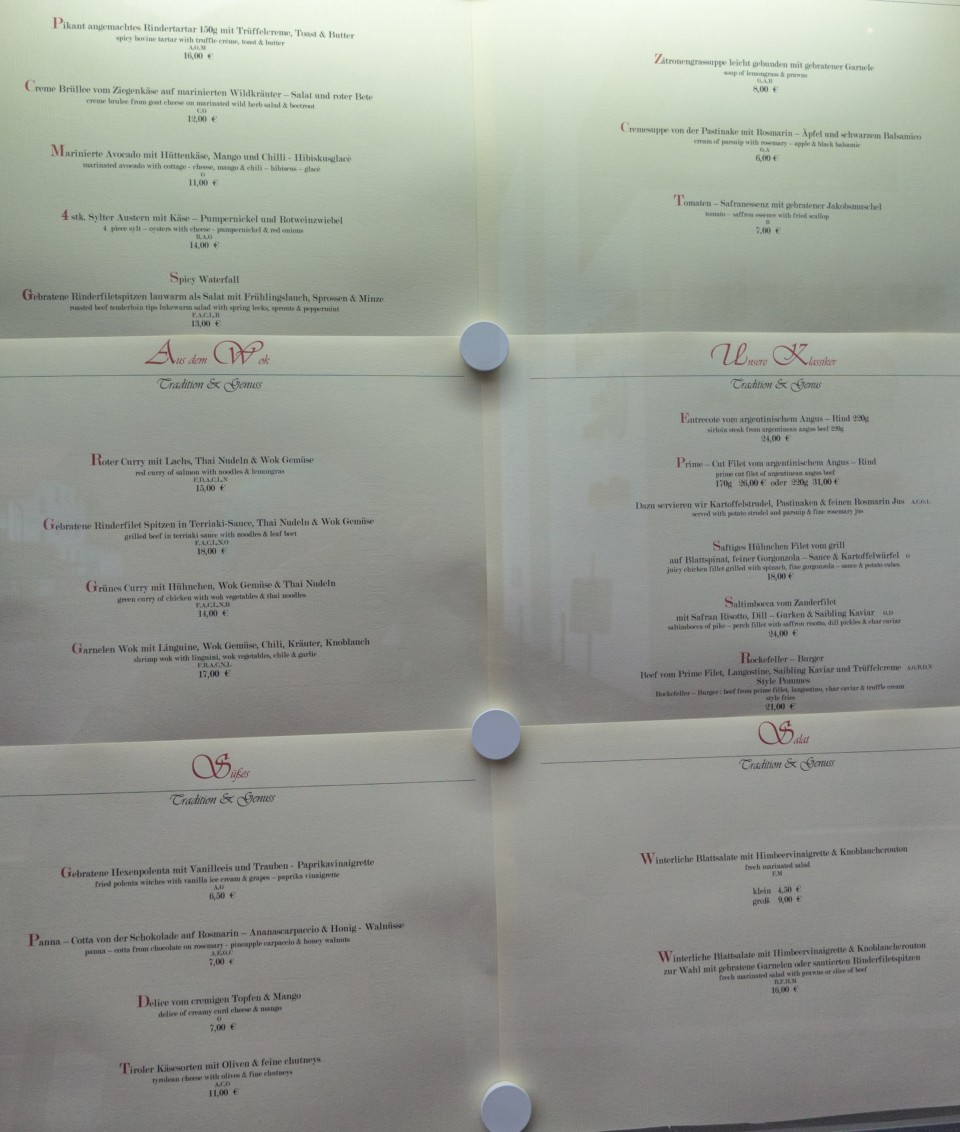 Pikant angemachtes Rindertartar 150g mit Trüffelcreme, Toast & Butter
spicy bovine tartar with truffle creme, toast & butter
A,G,M
16,00 €
Creme Brüllee vom Ziegenkäse auf marinierten Wildkräuter – Salat und roter Bete
creme brulee from goat cheese on marinated wild herb salad & beetroot
C,G
12,00 €
Marinierte Avocado mit Hüttenkäse, Mango und Chilli - Hibiskusglacé
marinated avocado with cottage - cheese, mango & chili – hibicus – glacé
G
11,00 €
4 stk. Sylter Austern mit Käse – Pumpernickel und Rotweinzwiebel
4 piece sylt – oysters with cheese - pumpernickel & red onions
R,A,G
14,00 €
Spicy Waterfall
Gebratene Rinderfiletspitzen lauwarm als Salat mit Frühlingslauch, Sprossen & Minze
roasted beef tenderloin tips lukewarm salad with spring leeks, sprouts & peppermint
13,00 €
Zitronengrassuppe leicht gebunden mit gebratener Garnele
soup of lemongrass & prawns
8,00 €
Cremesuppe von der Pastinake mit Rosmarin – Äpfel und schwarzem Balsamico
cream of parsnip with rosemary – apple & black balsamic
6,00 €
Tomaten – Safranessenz mit gebratener Jakobsmuschel
tomato – saffron essence with fried scallop
7,00 €
Aus dem Wok
Tradition & Genuss
Roter Curry mit Lachs, Thai Nudeln & Wok Gemüse
red curry of salmon with noodles & lemongras
F,D,A,C,L,N
15,00 €
Gebratene Rinderfilet Spitzen in Terriaki-Sauce, Thai Nudeln & Wok Gemüse
grilled beef in terriaki sauce with noodles & leaf beet
F,A,C,L,N,O
18,00 €
Grünes Curry mit Hühnchen, Wok Gemüse & Thai Nudeln
green curry of chicken with wok vegetables & thai noodles
14,00 €
Garnelen Wok mit Linguine, Wok Gemüse, Chili, Kräuter, Knoblanch
shrimp wok with linguini, wok vegetables, chile & garlic
F,B,A,C,N,L
17,00 €
Unsere Klassiker
Tradition & Genus
Entrecote vom argentinischem Angus – Rind 220g
sirloin steak from argentinean angus beef 220g
24,00 €
Prime – Cut Filet vom argentinischem Angus – Rind
prime cut filet of argentinean angus beef
170g 26,00 € oder 220g 31,00 €
Dazu servieren wir Kartoffelstrudel, Pastinaken & feinen Rosmarin Jus
served with potato strudel and parsnip & fine rosemary jus
Saftiges Hühnchen Filet vom grill
auf Blattspinat, feiner Gorgonzola – Sauce & Kartoffelwürfel G
juicy chicken fillet grilled with spinach, fine gorgonzola – sauce & potato cubes
18,00 €
Saltimbocca vom Zanderfilet
mit Safran Risotto, Dill – Gurken & Saibling Kaviar G,D
saltimbocca of pike – perch fillet with saffron risotto, dill pickles & char caviar
24,00 €
Rockefeller – Burger
Beef vom Prime Filet, Langostine, Saibling Kaviar und Trüffelcreme
Style Pommes
Rockefeller – Burger: beef from prime fillet, langostino, char caviar & truffle cream
style fries
21,00 €
Süßes
Tradition & Genuss
Gebratene Hexenpolenta mit Vanilleeis und Trauben - Paprikavinaigrette
fried polenta witches with vanilla ice cream & grapes – paprika vinaigrette
A,G
6,50 €
Panna – Cotta von der Schokolade auf Rosmarin – Ananascarpaccio & Honig - Walnüsse
panna – cotta from chocolate on rosemary - pineapple carpaccio & honey walnuts
7,00 €
Delice vom cremigen Topfen & Mango
delice of creamy curd cheese & mango
G
7,00 €
Tiroler Käsesorten mit Oliven & feine chutneys
tyrolean cheese with olives & fine chutneys
11,00 €
Salat
Tradition & Genuss
Winterliche Blattsalate mit Himbeervinaigrette & Knoblancherouton
frech marinated salad
F,M
klein 4,50 €
groß 9,00 €
Winterliche Blattsalate mit Himbeervinaigrette & Knoblancherouton
zur Wahl mit gebratene Garnelen oder santierten Rinderfiletspitzen
frech marinated salad with prawns or slice of beef
16,00 €